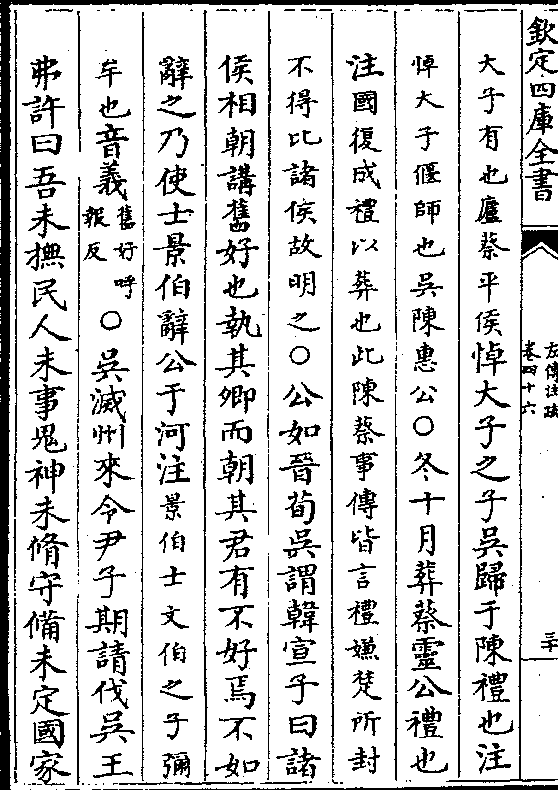 欽定四庫全書
左傳注疏
卷四十六
三十
大子有也廬蔡平侯悼大子之子吳歸于陳禮也注
悼大子偃師也吳陳惠公○冬十月葬蔡靈公禮也
注國復成禮以葬也此陳蔡事傳皆言禮嫌楚所封
不得比諸侯故明之○公如晉荀吳謂韓宣子曰諸
侯相朝講舊好也執其卿而朝其君有不好焉不如
辭之乃使士景伯辭公于河注景伯士文伯之子彌
牟也音義舊好呼報反○吳滅州來令尹子期請伐吳王
弗許曰吾未撫民人未事鬼神未脩守備未定國家